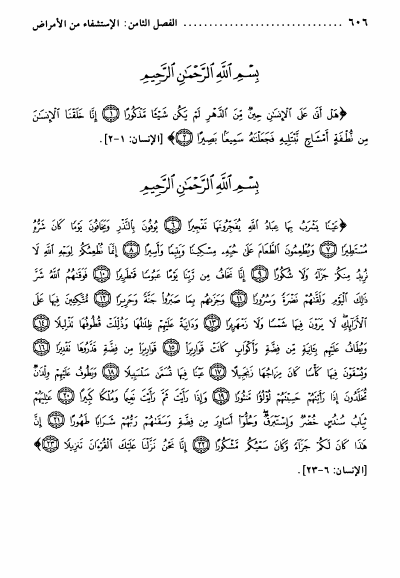 ٦٠٦ .............................. الفصل الثامن: الإستشفاء من الأمراض
بِسْمِ اللَّهِ الرَّحْمَٰنِ الرَّحِيمِ
﴿هَلْ أَتَىٰ عَلَى ٱلْإِنسَٰنِ حِينٌ مِّنَ ٱلدَّهْرِ لَمْ يَكُن شَيْـًٔا مَّذْكُورًا ﴿١﴾ إِنَّا خَلَقْنَا ٱلْإِنسَٰنَ
مِن نُّطْفَةٍ أَمْشَاجٍ نَّبْتَلِيهِ فَجَعَلْنَٰهُ سَمِيعًۢا بَصِيرًا ﴿٢﴾﴾ [الإنسان: ١-٢].
بِسْمِ اللَّهِ الرَّحْمَٰنِ الرَّحِيمِ
﴿عَيْنًا يَشْرَبُ بِهَا عِبَادُ ٱللَّهِ يُفَجِّرُونَهَا تَفْجِيرًا ﴿٦﴾ يُوفُونَ بِٱلنَّذْرِ وَيَخَافُونَ يَوْمًا كَانَ شَرُّهُۥ
مُسْتَطِيرًا ﴿٧﴾ وَيُطْعِمُونَ ٱلطَّعَامَ عَلَىٰ حُبِّهِۦ مِسْكِينًا وَيَتِيمًا وَأَسِيرًا ﴿٨﴾ إِنَّمَا نُطْعِمُكُمْ لِوَجْهِ ٱللَّهِ لَا
نُرِيدُ مِنكُمْ جَزَآءً وَلَا شُكُورًا ﴿٩﴾ إِنَّا نَخَافُ مِن رَّبِّنَا يَوْمًا عَبُوسًا قَمْطَرِيرًا ﴿١٠﴾ فَوَقَىٰهُمُ ٱللَّهُ شَرَّ
ذَٰلِكَ ٱلْيَوْمِ وَلَقَّىٰهُمْ نَضْرَةً وَسُرُورًا ﴿١١﴾ وَجَزَىٰهُم بِمَا صَبَرُوا۟ جَنَّةً وَحَرِيرًا ﴿١٢﴾ مُّتَّكِـِٔينَ فِيهَا عَلَى
ٱلْأَرَآئِكِ لَا يَرَوْنَ فِيهَا شَمْسًا وَلَا زَمْهَرِيرًا ﴿١٣﴾ وَدَانِيَةً عَلَيْهِمْ ظِلَٰلُهَا وَذُلِّلَتْ قُطُوفُهَا تَذْلِيلًا ﴿١٤﴾
وَيُطَافُ عَلَيْهِم بِـَٔانِيَةٍ مِّن فِضَّةٍ وَأَكْوَابٍ كَانَتْ قَوَارِيرَا۠ ﴿١٥﴾ قَوَارِيرَا۟ مِن فِضَّةٍ قَدَّرُوهَا تَقْدِيرًا ﴿١٦﴾
وَيُسْقَوْنَ فِيهَا كَأْسًا كَانَ مِزَاجُهَا زَنجَبِيلًا ﴿١٧﴾ عَيْنًا فِيهَا تُسَمَّىٰ سَلْسَبِيلًا ﴿١٨﴾ وَيَطُوفُ عَلَيْهِمْ وِلْدَٰنٌ
مُّخَلَّدُونَ إِذَا رَأَيْتَهُمْ حَسِبْتَهُمْ لُؤْلُؤًا مَّنثُورًا ﴿١٩﴾ وَإِذَا رَأَيْتَ ثَمَّ رَأَيْتَ نَعِيمًا وَمُلْكًا كَبِيرًا ﴿٢٠﴾ عَٰلِيَهُمْ
ثِيَابُ سُندُسٍ خُضْرٌ وَإِسْتَبْرَقٌ وَحُلُّوٓا۟ أَسَاوِرَ مِن فِضَّةٍ وَسَقَىٰهُمْ رَبُّهُمْ شَرَابًا طَهُورًا ﴿٢١﴾ إِنَّ
هَٰذَا كَانَ لَكُمْ جَزَآءً وَكَانَ سَعْيُكُم مَّشْكُورًا ﴿٢٢﴾ إِنَّا نَحْنُ نَزَّلْنَا عَلَيْكَ ٱلْقُرْءَانَ تَنزِيلًا ﴿٢٣﴾﴾
[الإنسان: ٦-٢٣].